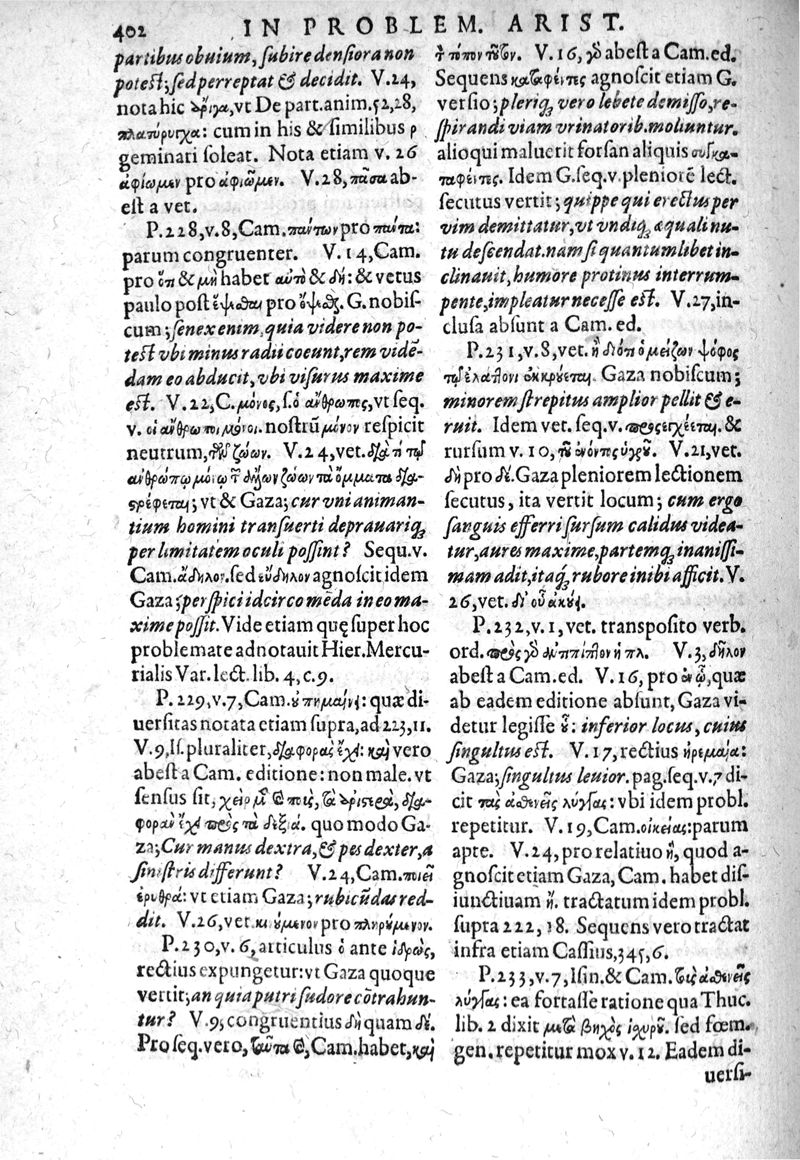 402 IN PROBLEM. ARIST.
partibus obuium, subire densiora non
potest; sed perreptat & decidit. V.24,
nota hic ὄῤῥιγα, vt De part.anim.52,28,
πλατύῤυγχα: cum in his & similibus ρ
geminari soleat. Nota etiam v. 26
ἀφίωμεν pro ἀφιῶμεν. V.28, πᾶσα ab-
est a vet.
P.228,v.8, Cam. πάντων pro πάντα:
parum congruenter. V.14, Cam.
pro ὅτι & μὴ habet αὐτὸ & δὴ: & vetus
paulo post ἕψεσθαι pro ὄψεσθαι. G. nobis-
cum; senex enim, quia videre non po-
test vbi minus radii coeunt, rem vidē-
dam eo abducit, vbi visurus maxime
est. V.22, C. μόνος, s. ὁ ἄνθρωπος, vt seq.
v. οἱ ἄνθρωποι μόνοι. nostrū μόνον respicit
neutrum, τῶν ζώων. V.24, vet. διὰ τί τῷ
ἀνθρώπῳ μόνῳ τῶν ἄλλων ζώων τὰ ὄμματα δια-
στρέφεται; vt & Gaza; cur vni animan-
tium homini transuerti deprauariq́;
per limitatem oculi possint? Sequ.v.
Cam. ἄδηλον. sed εὔδηλον agnoscit idem
Gaza; perspici idcirco mēda in eo ma-
xime possit. Vide etiam quę super hoc
problemate adnotauit Hier. Mercu-
rialis Var. lect. lib. 4, c. 9.
P. 229, v.7, Cam. ὑπημαίνει: quæ di-
uersitas notata etiam supra, ad 223, 11.
V.9, Is. pluraliter, διαφορὰς ἔχει: καὶ vero
abest a Cam. editione: non male. vt
sensus sit, χεὶρ μὲν & ποῦς, τὰ ἀριστερὰ, δια-
φορὰν ἔχει πρὸς τὰ δεξιά. quo modo Ga-
za; Cur manus dextra, & pes dexter, a
sinistris differunt? V.24, Cam. ποιεῖ
ἐρυθρά: vt etiam Gaza; rubicūdas red-
dit. V.26, vet. κινούμενον pro πληρούμενον.
P.230, v. 6, articulus ὁ ante ἱδρὼς,
rectius expungetur: vt Gaza quoque
vertit; an quia putri sudore cōtrahun-
tur? V.9, congruentius δὴ quam δέ.
Pro seq. vero, ταῦτα &, Cam. habet, καὶ
τὸν τύπον τοῦτον. V. 16, γὰρ abest a Cam. ed.
Sequens καταφέντες agnoscit etiam G.
versio; pleriq; vero lebete demisso, re-
spirandi viam vrinatorib. moliuntur.
alioqui maluerit forsan aliquis συγκα-
ταφέντες. Idem G. seq. v. pleniorē lect.
secutus vertit; quippe qui erectus per
vim demittatur, vt vndiq; æquali nu-
tu descendat. nam si quantumlibet in-
clinauit, humore protinus interrum-
pente, impleatur necesse est. V. 27, in-
clusa absunt a Cam. ed.
P.231, v.8, vet. ἢ διότι ὁ μείζων ψόφος
τῷ ἐλάττονι ἐκκρούεται. Gaza nobiscum;
minorem strepitus amplior pellit & e-
ruit. Idem vet. seq. v. προσεγχέεται. &
rursum v. 10, τοῦ ἐνόντος ὑγροῦ. V.21, vet.
δὴ pro δέ. Gaza pleniorem lectionem
secutus, ita vertit locum; cum ergo
sanguis efferri sursum calidus videa-
tur, aures maxime, partemq́; inanissi-
mam adit, itaq́; rubore inibi afficit. V.
26, vet. δι' οὗ ἀκούει.
P. 232, v. 1, vet. transposito verb.
ord. πρὸς γὰρ ἐμπίπλον ἢ πλ. V. 3, δῆλον
abest a Cam. ed. V. 16, pro ἐν ᾧ, quæ
ab eadem editione absunt, Gaza vi-
detur legisse οὗ: inferior locus, cuius
singultus est. V. 17, rectius ἠρεμαία:
Gaza; singultus leuior. pag. seq. v.7 di-
cit τὰς ἀσθενεῖς λύγγας: vbi idem probl.
repetitur. V. 19, Cam. οἰκείας: parum
apte. V.24, pro relatiuo ἣ, quod a-
gnoscit etiam Gaza, Cam. habet dis-
iunctiuam ἤ. tractatum idem probl.
supra 222, 18. Sequens vero tractat
infra etiam Cassius, 345, 6.
P. 233, v.7, Isin. & Cam. τοὺς ἀσθενεῖς
λύγγας: ea fortasse ratione qua Thuc.
lib. 2 dixit μετὰ βηχὸς ἰσχυροῦ. sed fœm.
gen. repetitur mox v. 12. Eadem di-
uersi-